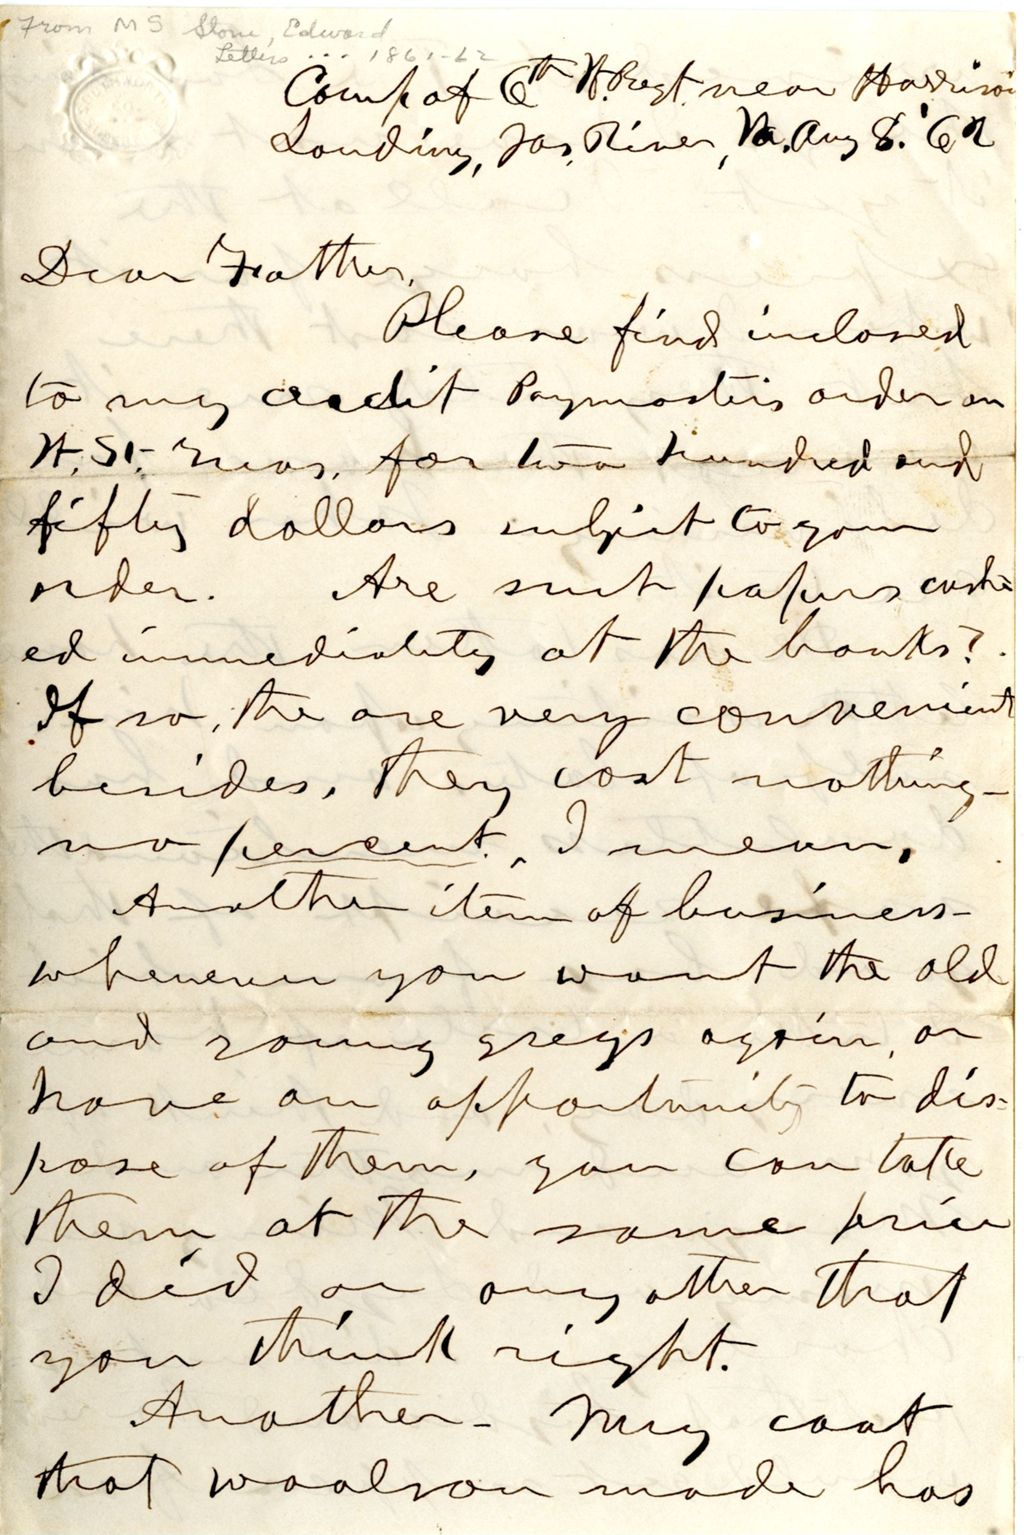 From MS Stone, Edward
Letters ... 1861-62
Camp of 6th N.Regt. near Harrison
Landing, Jas. River, Va. Aug 8. '62
Dear Father,
Please find inclosed
to my credit Paymasters order on
U. St. Treas. for two hundred and
fifty dollars subject to your
order. Are such papers cash-
ed immediately at the banks?
If so, the are very convenient
besides, they cost nothing-
no percent, I mean,
Another item of business-
whenever you want the old
and young greys again, or
have an opportunity to dis-
pose of them, you can take
them at the same price
I did or any other that
you think right.
Another- My coat
that woolson made has